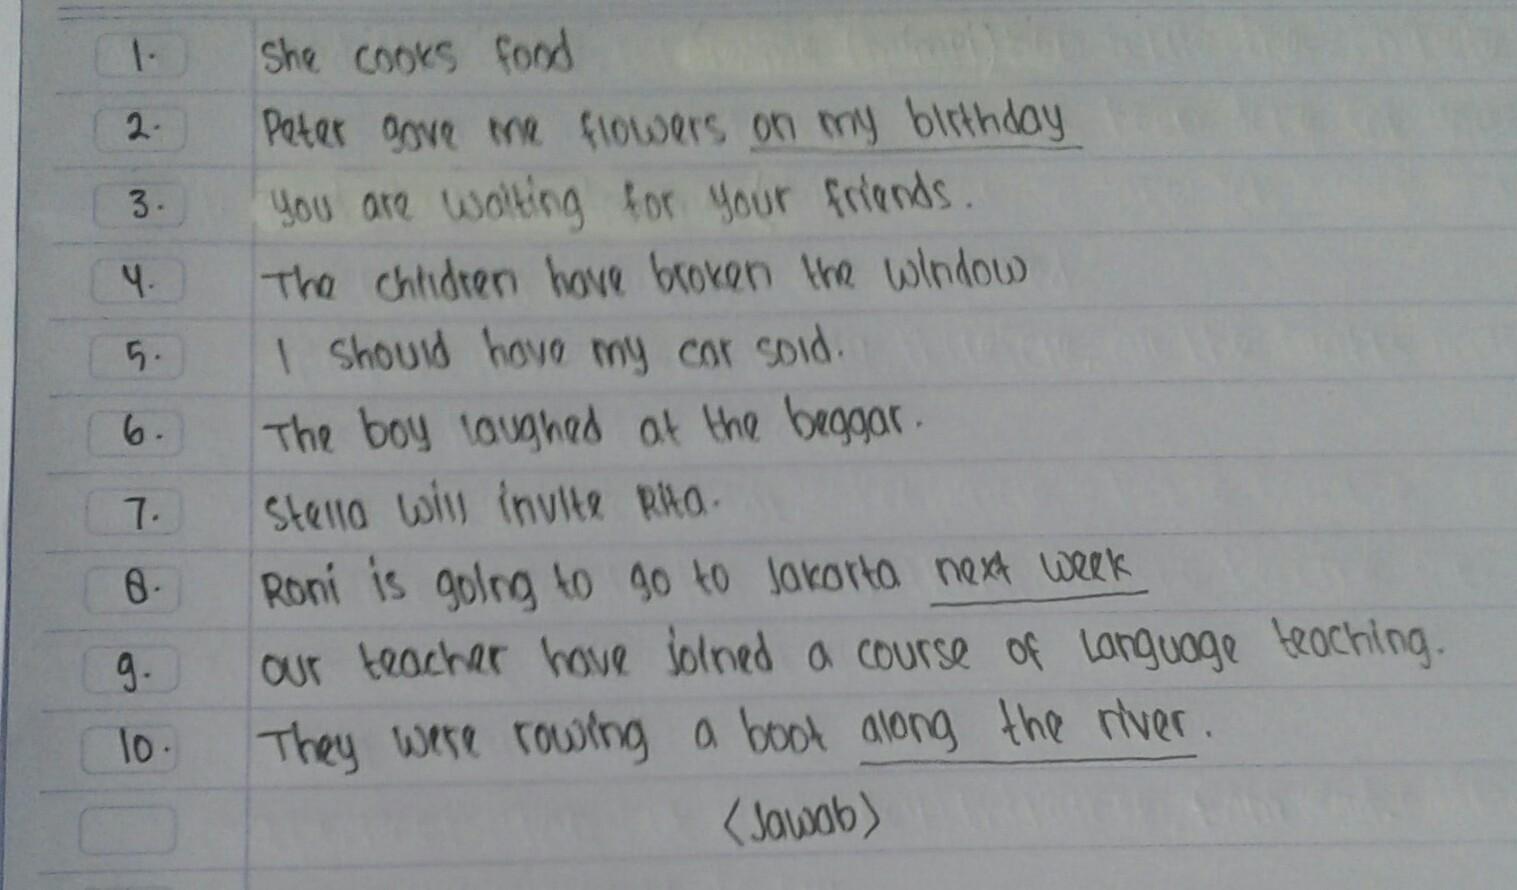 1. She cooks food
2. Peter gave me flowers on my birthday
3. You are waiting for your friends.
4. The children have broken the window
5. I should have my car sold.
6. The boy laughed at the beggar.
7. Stella will invite Rita.
8. Roni is going to go to Jakarta next week
9. our teacher have joined a course of Language teaching.
10. They were rowing a boat along the river.
(Jawab)